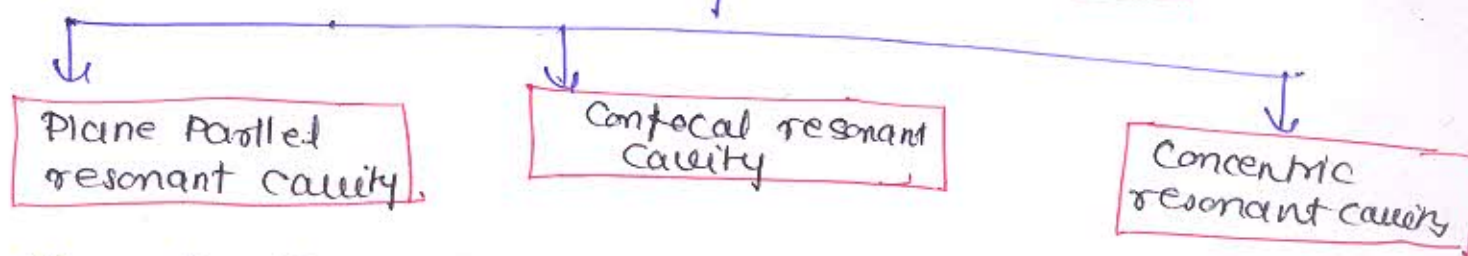 Plane Parllel
resonant cavity.
Confocal resonant
Cavity
Concentric
resonant cavity